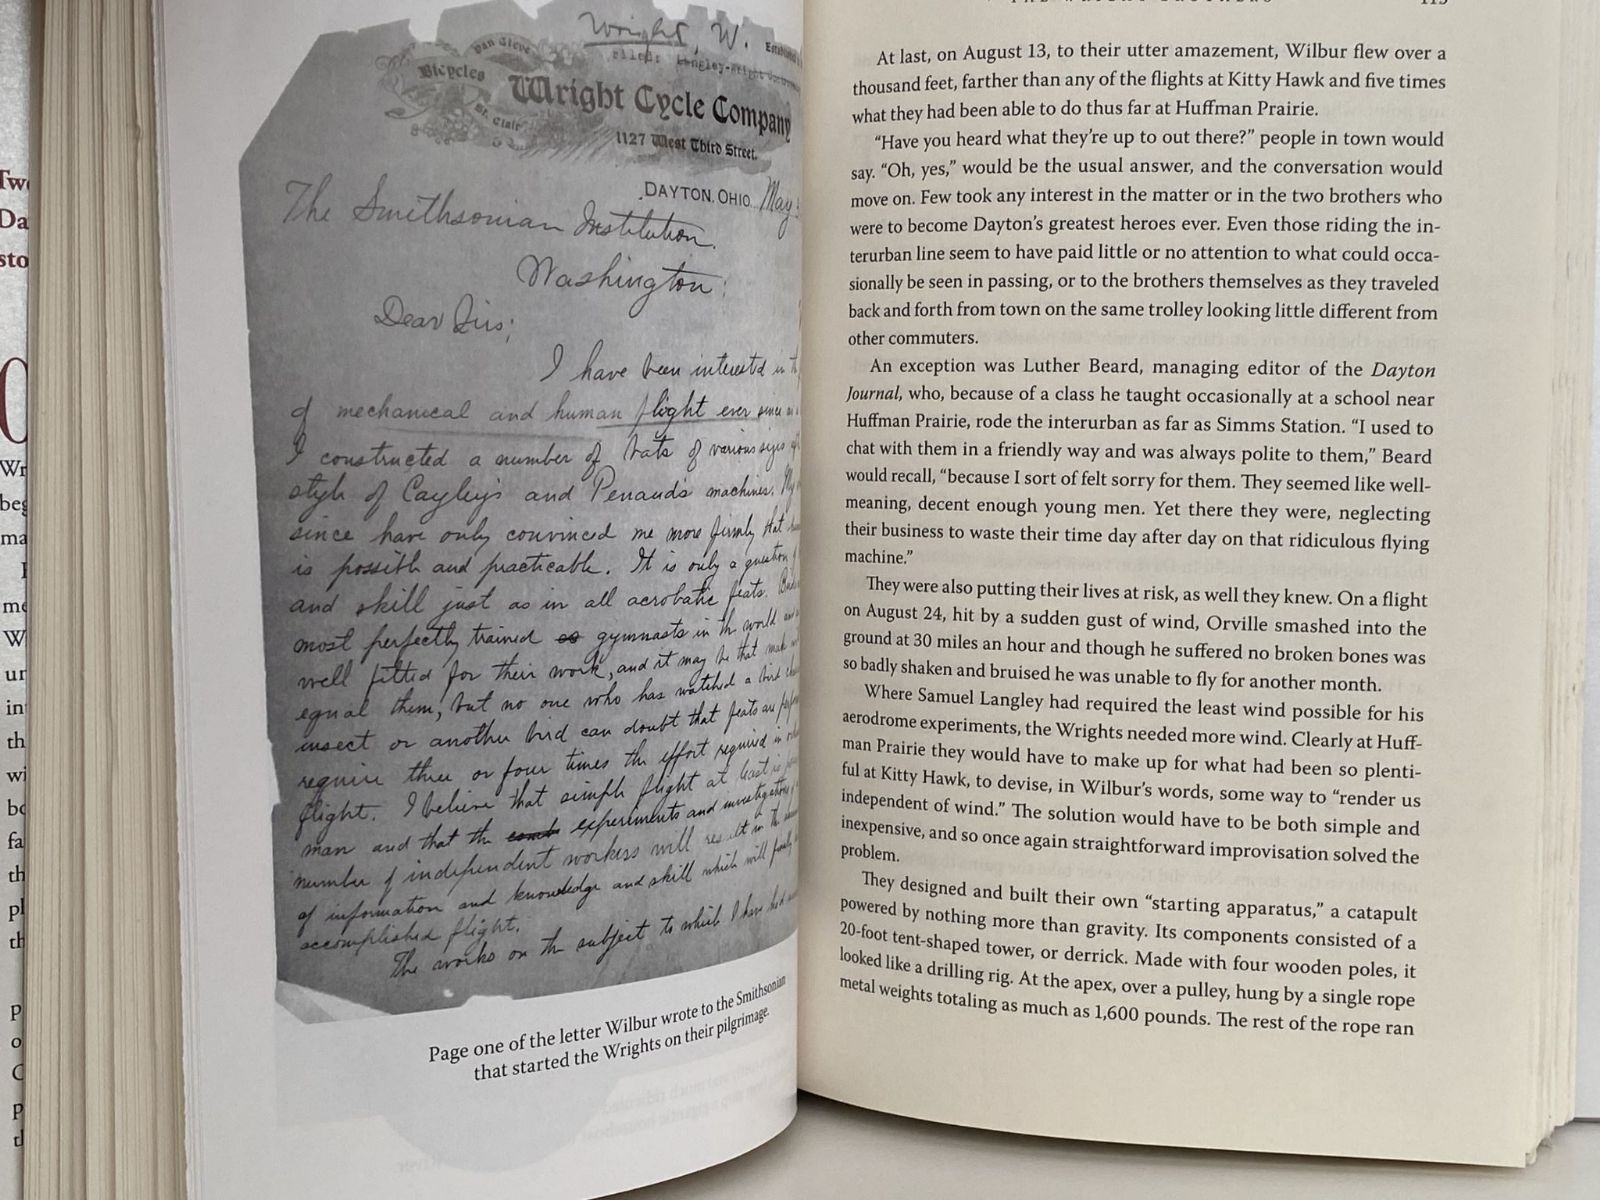 Two
Da
sto
Wr
beg
ma
me
W
un
in
th
wi
bo
fa
th
pl
th
Wright, W.
filed: Langley-Wright
Van Cleve
Bicycles
St. Clair
Wright Cycle Company
1127 West Third Street.
DAYTON, OHIO. May
The Smithsonian Institution.
Washington;
Dear Sirs;
I have been interested in
of mechanical and human flight ever since
I constructed a number of bats of various sizes
style of Cayley's and Penaud's machines. My
since have only convinced me more firmly that
is possible and practicable. It is only a question
and skill just as in all acrobatic feats.
most perfectly trained gymnasts in the world and
well fitted for their work, and it may be that man
equal them, but no one who has watched a bird
insect or another bird can doubt that feats are
require three or four times the effort required in
flight. I believe that simple flight at least is
man and that the experiments and investigations
number of independent workers will result in the
of information and knowledge and skill which will
accomplished flight.
The works on the subject to which I have had
Page one of the letter Wilbur wrote to the Smithsonian
that started the Wrights on their pilgrimage.
113
At last, on August 13, to their utter amazement, Wilbur flew over a
thousand feet, farther than any of the flights at Kitty Hawk and five times
what they had been able to do thus far at Huffman Prairie.
“Have you heard what they’re up to out there?” people in town would
say. “Oh, yes,” would be the usual answer, and the conversation would
move on. Few took any interest in the matter or in the two brothers who
were to become Dayton’s greatest heroes ever. Even those riding the in-
terurban line seem to have paid little or no attention to what could occa-
sionally be seen in passing, or to the brothers themselves as they traveled
back and forth from town on the same trolley looking little different from
other commuters.
An exception was Luther Beard, managing editor of the Dayton
Journal, who, because of a class he taught occasionally at a school near
Huffman Prairie, rode the interurban as far as Simms Station. “I used to
chat with them in a friendly way and was always polite to them,” Beard
would recall, “because I sort of felt sorry for them. They seemed like well-
meaning, decent enough young men. Yet there they were, neglecting
their business to waste their time day after day on that ridiculous flying
machine.”
They were also putting their lives at risk, as well they knew. On a flight
on August 24, hit by a sudden gust of wind, Orville smashed into the
ground at 30 miles an hour and though he suffered no broken bones was
so badly shaken and bruised he was unable to fly for another month.
Where Samuel Langley had required the least wind possible for his
aerodrome experiments, the Wrights needed more wind. Clearly at Huff-
man Prairie they would have to make up for what had been so plenti-
ful at Kitty Hawk, to devise, in Wilbur’s words, some way to “render us
independent of wind.” The solution would have to be both simple and
inexpensive, and so once again straightforward improvisation solved the
problem.
They designed and built their own “starting apparatus,” a catapult
powered by nothing more than gravity. Its components consisted of a
20-foot tent-shaped tower, or derrick. Made with four wooden poles, it
looked like a drilling rig. At the apex, over a pulley, hung by a single rope
metal weights totaling as much as 1,600 pounds. The rest of the rope ran